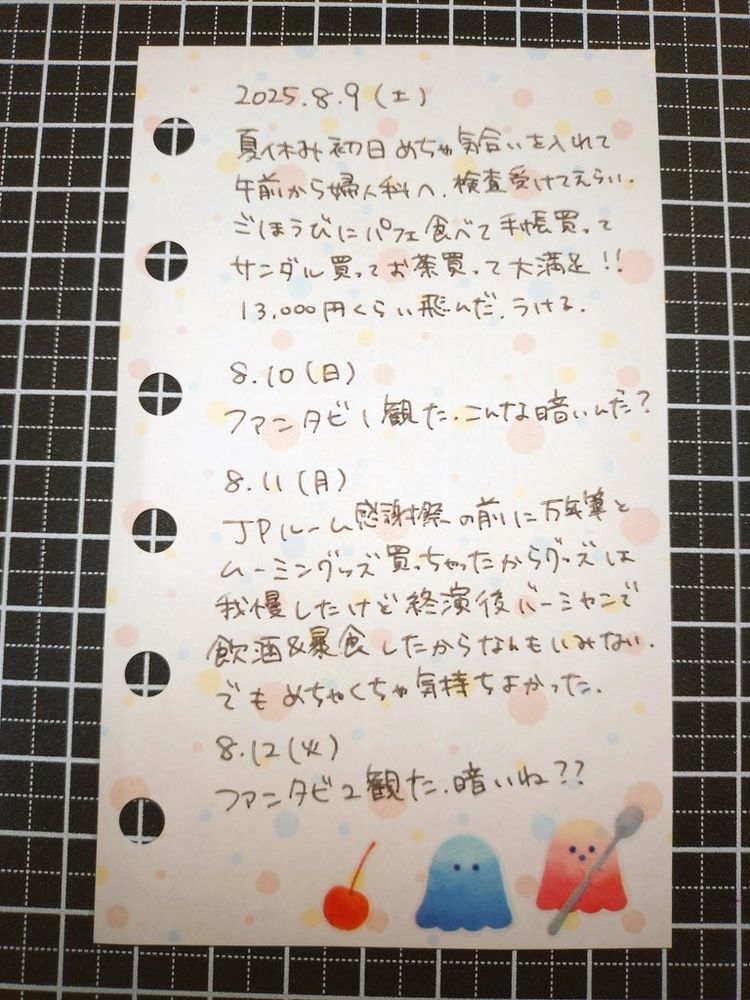 2025.8.9(土)
夏休み初日めちゃ気合いを入れて
午前から婦人科へ.検査受けてえらい.
ごほうびにパフェ食べて手帳買って
サンダル買ってお茶買って大満足!!
13,000円くらい飛んだ.うける.
8.10(日)
ファンタビ1観た.こんな暗いんだ?
8.11(月)
JPルーム感謝祭の前に万年筆と
ムーミングッズ買っちゃったからグッズは
我慢したけど終演後バーミヤンで
飲酒&暴食したからなんもいみない.
でもめちゃくちゃ気持ちよかった.
8.12(火)
ファンタビ2観た.暗いね??